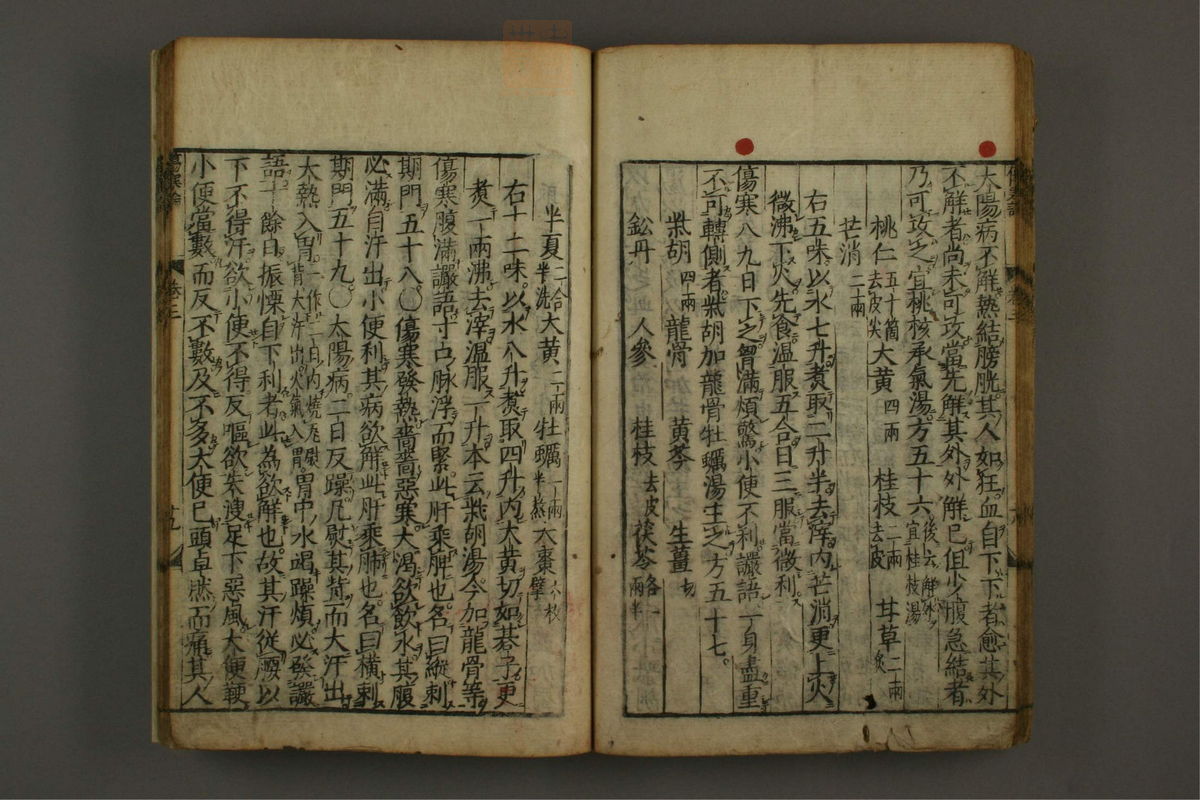 太陽病不解熱結膀胱其人如狂血自下下者愈其外
不解者尚未可攻當先解其外外解已但少腹急結者
乃可攻之宜桃核承氣湯方五十六後云解外宜桂枝湯
桃仁五十箇去皮尖 大黄四兩 桂枝二兩去皮 甘草二兩炙
芒消二兩
右五味以水七升煮取二升半去滓内芒消更上火
微沸下火先食温服五合日三服當微利
傷寒八九日下之胷滿煩驚小便不利讝語一身盡重
不可轉側者柴胡加龍骨牡蠣湯主之方五十七
柴胡四兩 龍骨 黄芩 生薑切
鈆丹 人參 桂枝去皮 茯苓各一兩半
半夏二合半洗 大黄二兩 牡蠣一兩半熬 大棗六枚擘
右十二味以水八升煮取四升内大黄切如碁子更
煮一兩沸去滓温服一升本云柴胡湯今加龍骨等
傷寒腹滿讝語寸口脉浮而緊此肝乘脾也名曰縱刺
期門五十八○傷寒發熱嗇嗇惡寒大渴欲飲水其腹
必滿自汗出小便利其病欲解此肝乘肺也名曰横刺
期門五十九○太陽病二日反躁凡熨其背而大汗出
大熱入胃一作二日内燒瓦熨背大汗出火氣入胃胃中水竭躁煩必發讝
語十餘日振慄自下利者此為欲解也故其汗従腰以
下不得汗欲小便不得反嘔欲失溲足下惡風大便鞕
小便當數而反不數及不多大便已頭卓然而痛其人